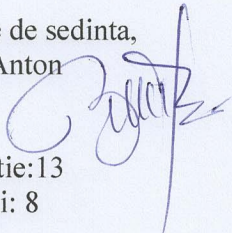 e de sedinta,
Anton
tie:13
i: 8